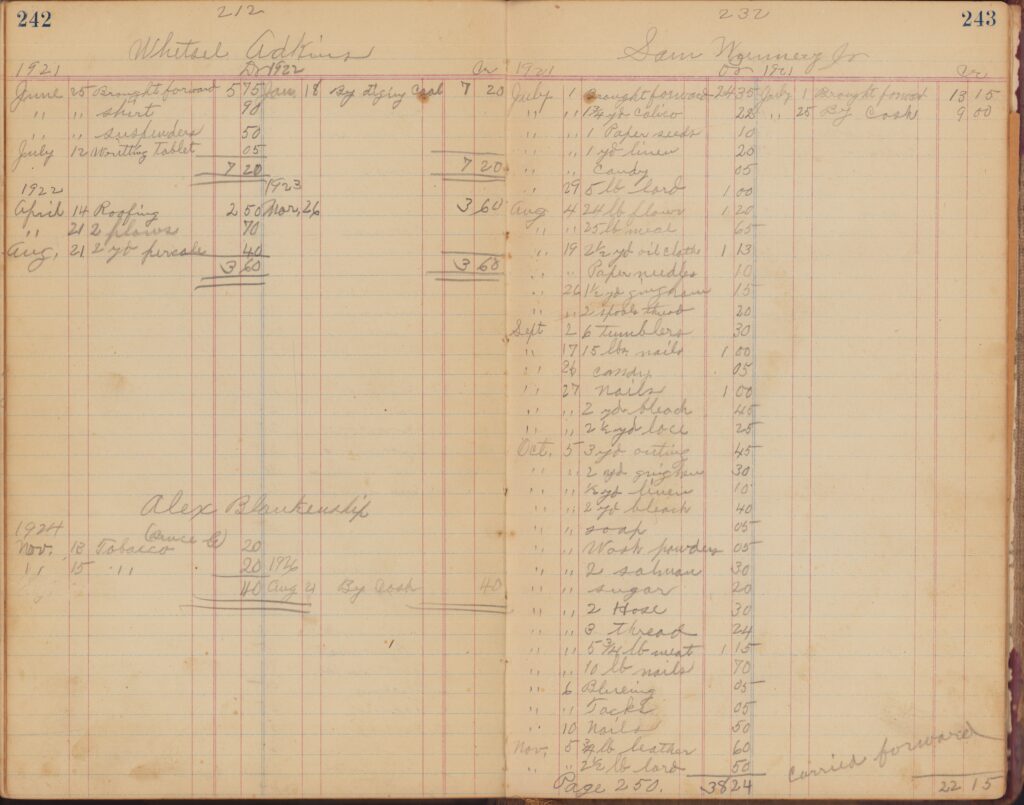 242
212
Whetsel Adkins
1921 Dr 1922 Cr
June 25 Brought forward 5 75 Jan 18 By Diging Coal 7 20
" " shirt 90
" " suspenders 50
July 12 Writting tablet 05
7 20 7 20
1922 1923
April 14 Roofing 2 50 Mar, 26 3 60
" 21 2 plows 70
Aug, 21 2 yd percale 40
3 60 3 60
Alex Blankenship
1924
Nov, 13 Tobacco 20
" 15 " 20 1926
40 Aug 21 By Cash 40
232
243
Sam Jr
1921 Dr 1921 Cr
July 1 Brought forward 24 35 July 1 Brought forward 13 15
" " 1 3/4 yd calico 22 " 25 By Cash 9 00
" " 1 Paper seeds 10
" " 1 yd linen 20
" " Candy 05
" 29 5 lb lard 1 00
Aug 4 24 lb flour 1 20
" " 25 lb meal 65
" 19 2 1/2 yd oil cloth 1 13
" " Paper needles 10
" 26 1 1/2 yd gingham 15
" " 2 spools thread 20
Sept 2 6 tumblers 30
" 17 15 lbs nails 1 00
" 26 candy 05
" 27 nails 1 00
" " 2 yd bleach 45
" " 2 1/2 yd lace 25
Oct. 5 3 yd outing 45
" " 2 yd gingham 30
" " 1/2 yd linen 10
" " 2 yd bleach 40
" " soap 05
" " Wash powders 05
" " 2 salmon 30
" " sugar 20
" " 2 Hose 30
" " 3 thread 24
" " 5 3/4 lb meat 1 15
" " 10 lb nails 70
" 6 Blueing 05
" " Tacks 05
" 10 Nails 50
Nov. 5 3/4 lb leather 60
" " 2 1/2 lb lard 50
Page 250. 38 24 carried forward 22 15